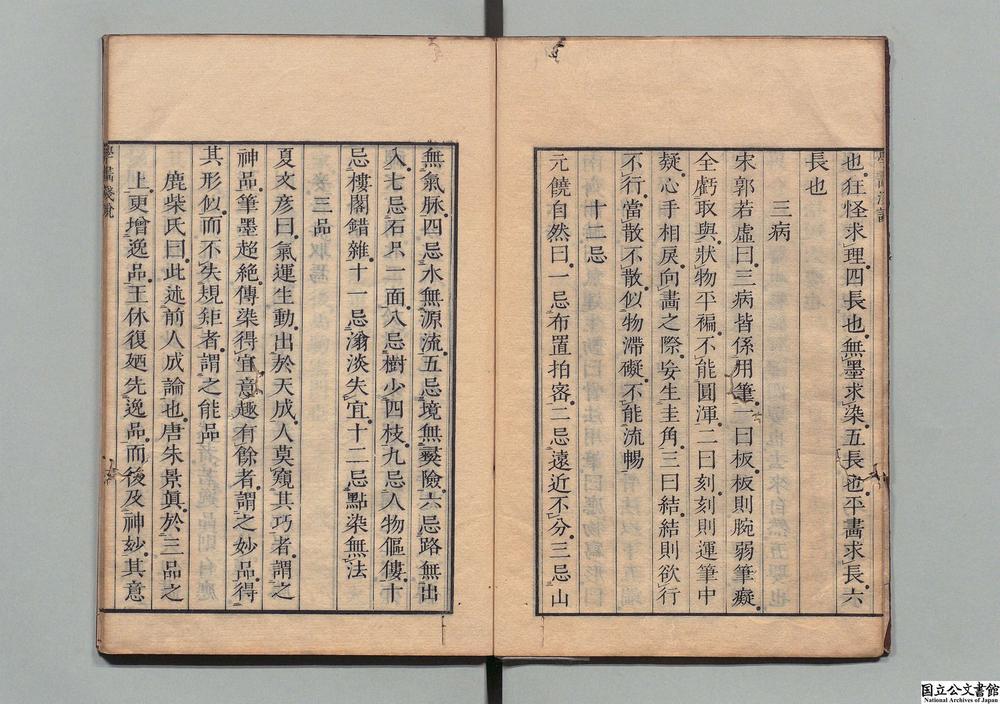 也狂怪求理四長也無墨求染五長也平畵求長六
長也
三病
宋郭若虛曰三病皆係用筆一曰板板則腕弱筆癡
全虧取與狀物平褊不能圓渾二曰刻刻則運筆中
疑心手相戾向畵之際妄生圭角三曰結結則欲行
不行當散不散似物滯礙不能流暢
十二忌
元饒自然曰一忌布置拍密二忌遠近不分三忌山
無氣脉四忌水無源流五忌境無夷險六忌路無出
入七忌石只一面八忌樹少四枝九忌人物傴僂十
忌樓閣錯雜十一忌滃淡失宜十二忌點染無法
三品
夏文彥曰氣運生動出於天成人莫窺其巧者謂之
神品筆墨超絶傳染得宜意趣有餘者謂之妙品得
其形似而不失規矩者謂之能品
鹿柴氏曰此述前人成論也唐朱景眞於三品之
上更增逸品王休復廼先逸品而後及神妙其意
國立公文書館
National Archives of Japan